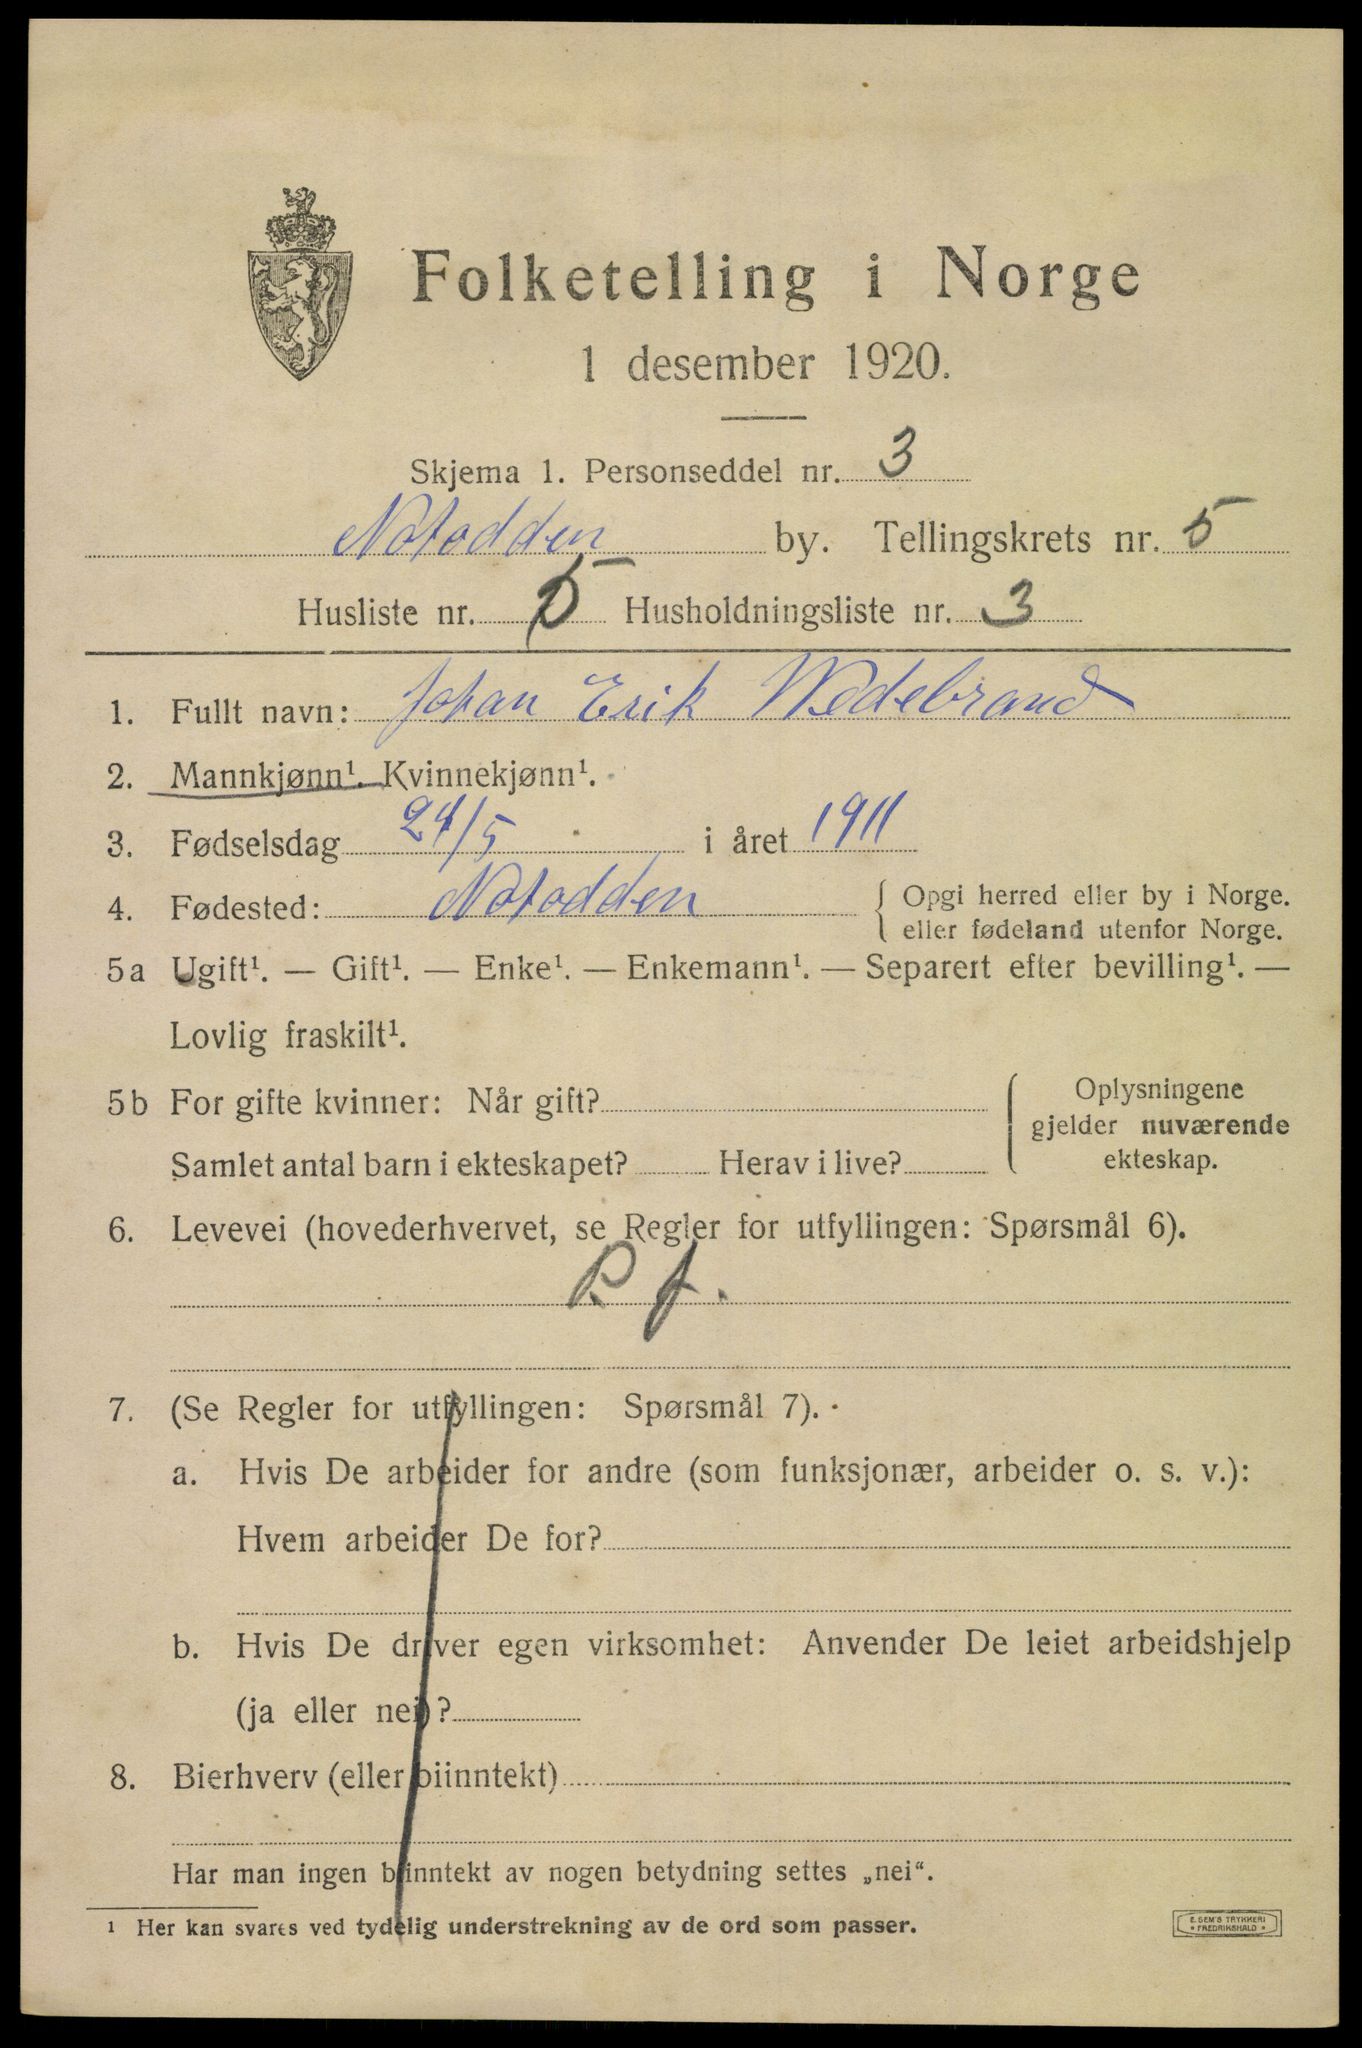 Folketelling i Norge
1 desember 1920.
Skjema 1. Personseddel nr. 3
Notodden by. Tellingskrets nr. 5
Husliste nr. 5 Husholdningsliste nr. 3
1. Fullt navn: Johan Erik Wedebrand
2. Mannkjønn¹. Kvinnekjønn¹.
3. Fødselsdag 24/5 i året 1911
4. Fødested: Notodden { Opgi herred eller by i Norge.
eller fødeland utenfor Norge.
5a Ugift¹. — Gift¹. — Enke¹. — Enkemann¹. — Separert efter bevilling¹. —
Lovlig fraskilt¹.
5b For gifte kvinner: Når gift?
Samlet antal barn i ekteskapet? Herav i live?
Oplysningene
gjelder nuværende
ekteskap.
6. Levevei (hovederhvervet, se Regler for utfyllingen: Spørsmål 6).
P. f.
7. (Se Regler for utfyllingen: Spørsmål 7).
a. Hvis De arbeider for andre (som funksjonær, arbeider o. s. v.):
Hvem arbeider De for?
b. Hvis De driver egen virksomhet: Anvender De leiet arbeidshjelp
(ja eller nei)?
8. Bierhverv (eller biinntekt)
Har man ingen biinntekt av nogen betydning settes „nei“.
¹ Her kan svares ved tydelig understrekning av de ord som passer.
E. SEM'S TRYKKERI
• FREDRIKSHALD •